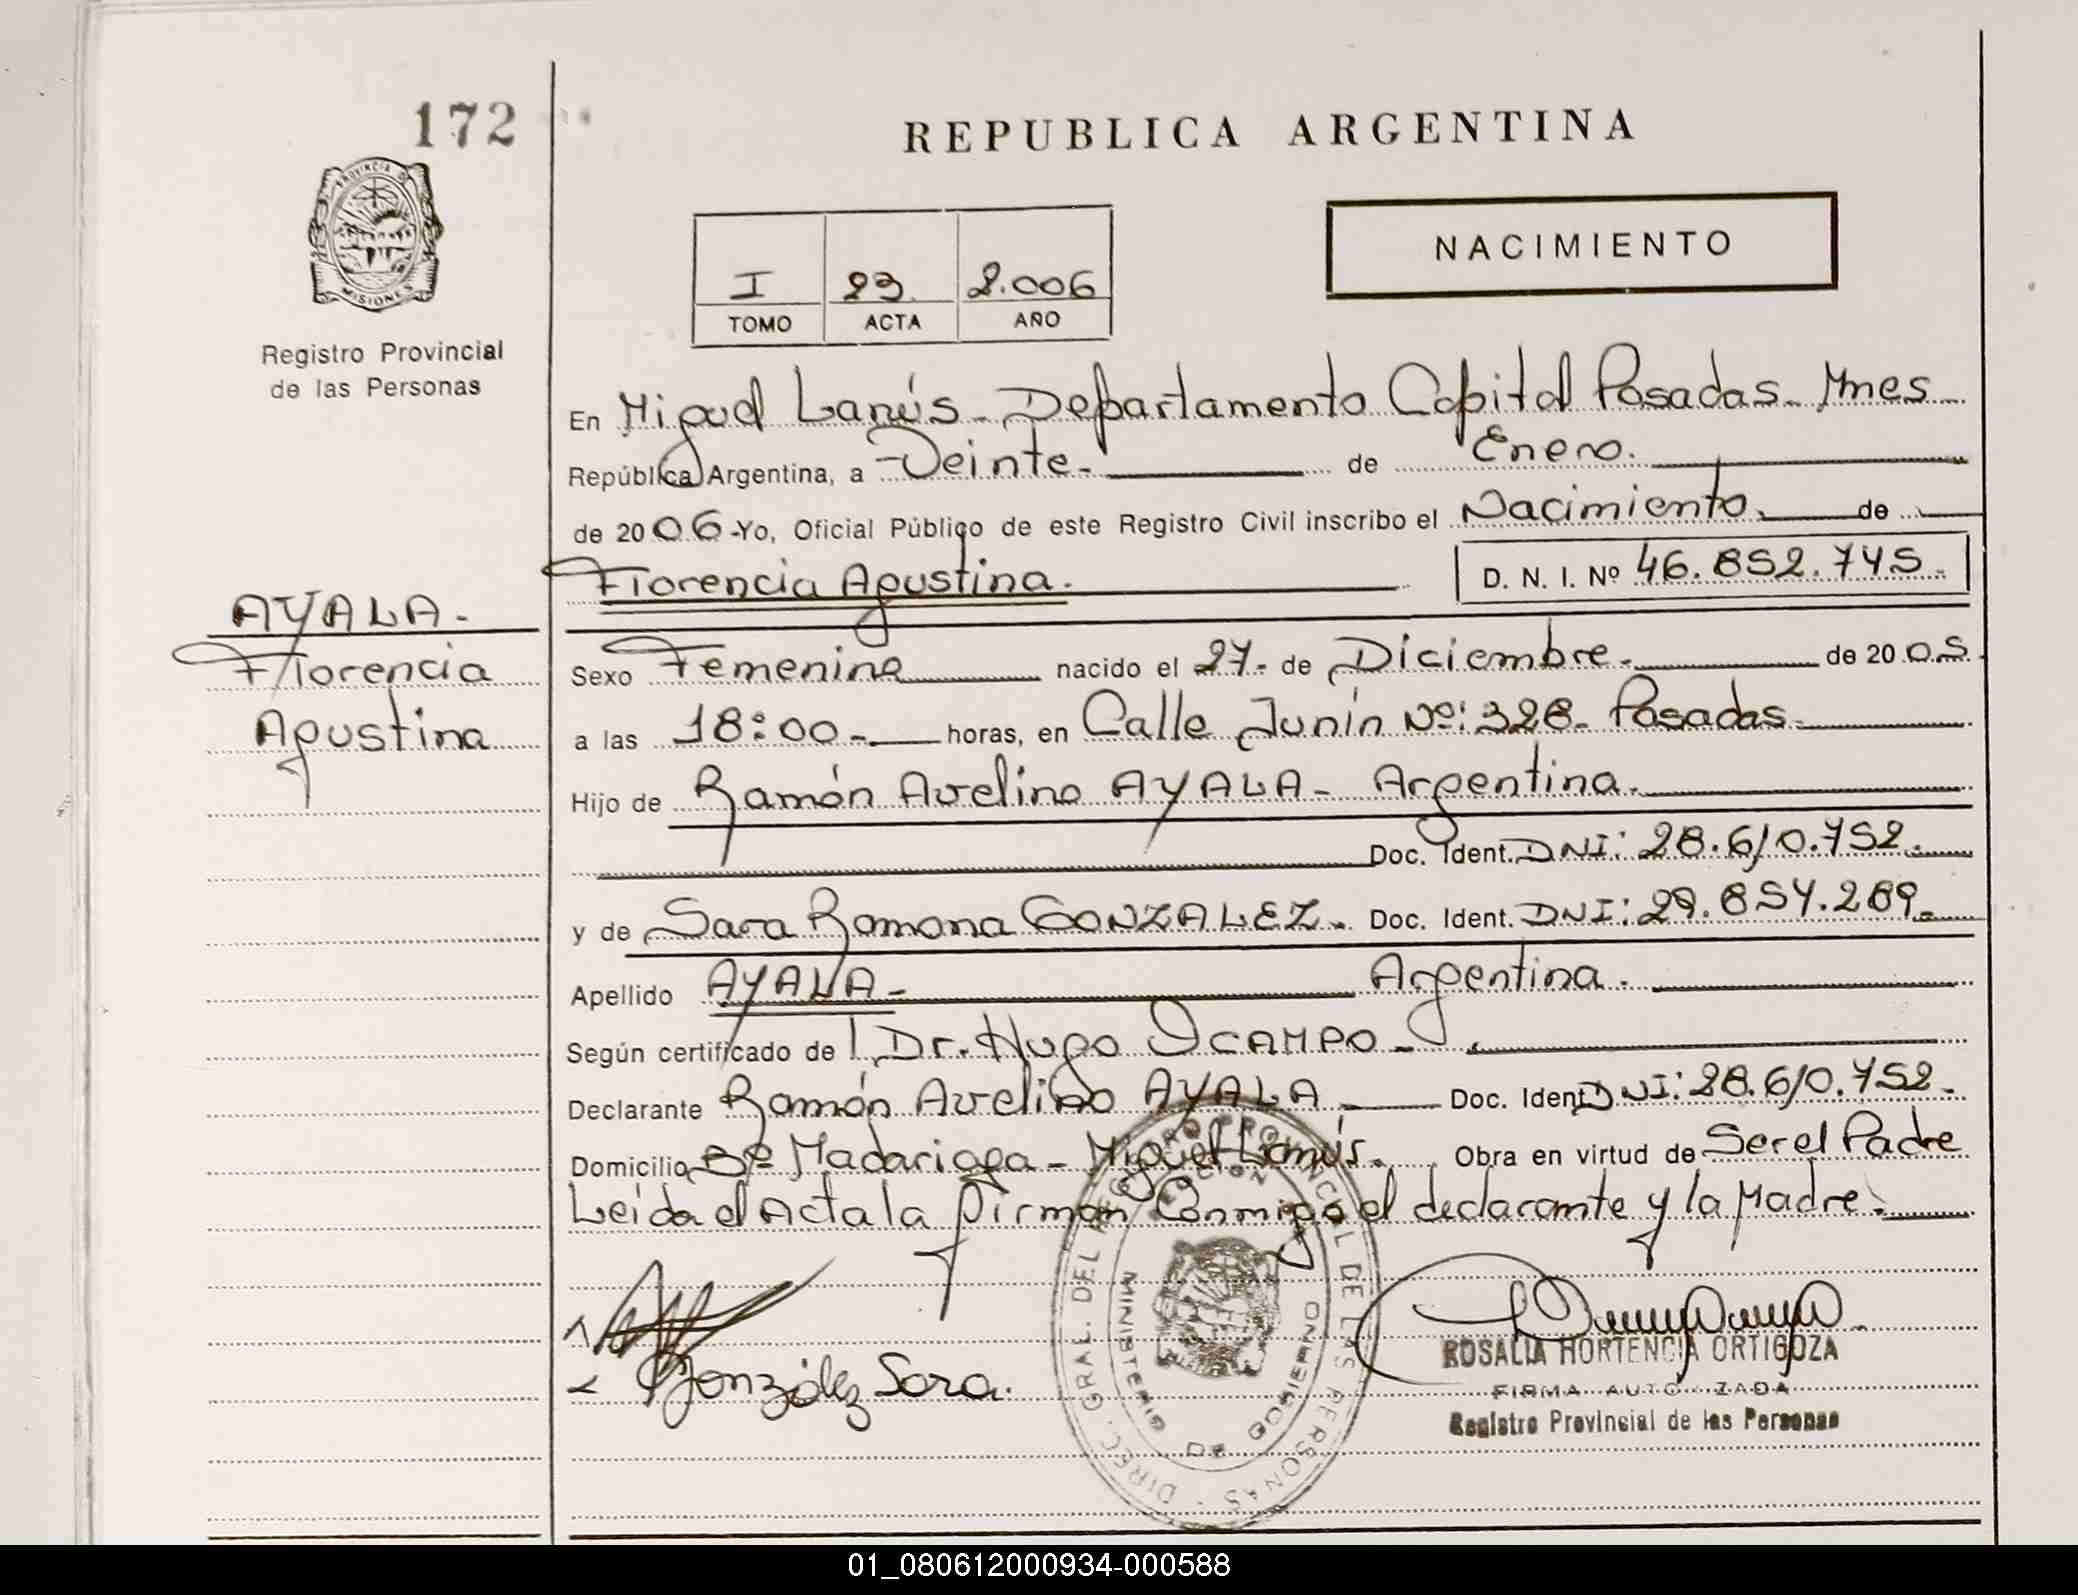 172
REPUBLICA ARGENTINA
PROVINCIA D
MISIONES
NACIMIENTO
I 23. 2.006
TOMO ACTA AÑO
Registro Provincial
de las Personas
En Miguel Lanús - Departamento Capital Posadas - Mnes
República Argentina, a Veinte. de Enero.
de 2006 - Yo, Oficial Público de este Registro Civil inscribo el Nacimiento. de
Florencia Agustina. D. N. I. Nº 46.852.745.
AYALA -
Florencia
Agustina
Sexo Femenino nacido el 27. de Diciembre. de 2005.
a las 18:00 - horas, en Calle Junín Nº: 328 - Posadas
Hijo de Ramón Avelino AYALA - Argentina.
Doc. Ident. DNI: 28.610.752.
y de Sara Ramona GONZALEZ. Doc. Ident. DNI: 29.854.289.
Apellido AYALA - Argentina.
Según certificado de Dr. Hugo OCAMPO -
Declarante Ramón Avelino AYALA Doc. Ident DNI: 28.610.752.
Domicilio Bº Madariaga - Miguel Lanús. Obra en virtud de Ser el Padre
Leída el Acta la firman Conmigo el declarante y la Madre.
González Sara.
DIREC. GRAL. DEL REGISTRO PROVINCIAL DE LAS PERSONAS
MINISTERIO DE GOBIERNO
ROSALIA HORTENCIA ORTIGOZA
FIRMA AUTORIZADA
Registro Provincial de las Personas
01_080612000934-000588